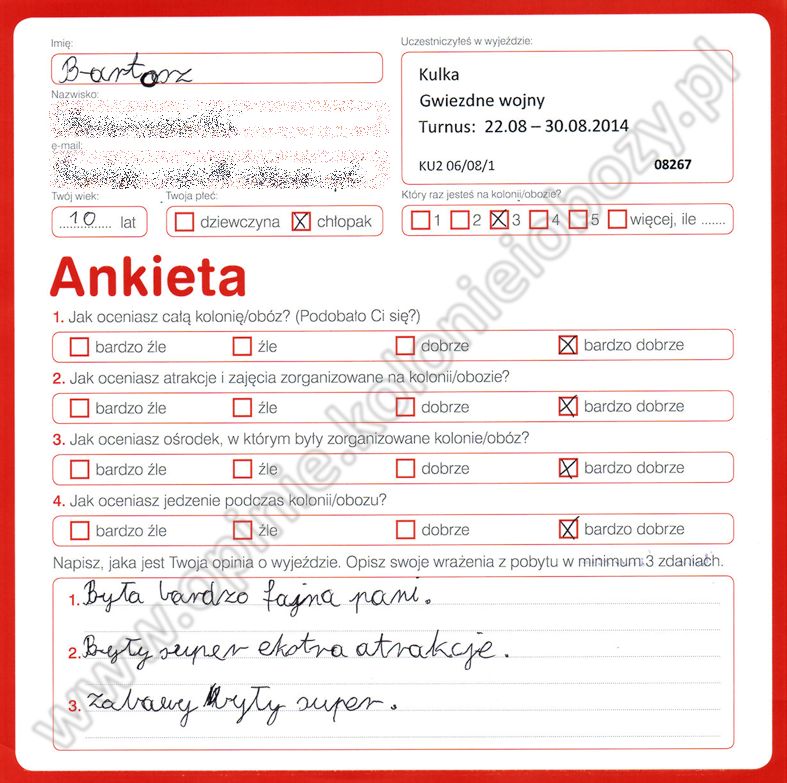 Imię:
Bartosz
Nazwisko:
e-mail:
Twój wiek:
10 lat
Twoja płeć:
dziewczyna chłopak
Uczestniczyłeś w wyjeździe:
Kulka
Gwiezdne wojny
Turnus: 22.08 – 30.08.2014
KU2 06/08/1 08267
Który raz jesteś na kolonii/obozie?
1 2 3 4 5 więcej, ile .......
Ankieta
1. Jak oceniasz całą kolonię/obóz? (Podobało Ci się?)
bardzo źle źle dobrze bardzo dobrze
2. Jak oceniasz atrakcje i zajęcia zorganizowane na kolonii/obozie?
bardzo źle źle dobrze bardzo dobrze
3. Jak oceniasz ośrodek, w którym były zorganizowane kolonie/obóz?
bardzo źle źle dobrze bardzo dobrze
4. Jak oceniasz jedzenie podczas kolonii/obozu?
bardzo źle źle dobrze bardzo dobrze
Napisz, jaka jest Twoja opinia o wyjeździe. Opisz swoje wrażenia z pobytu w minimum 3 zdaniach.
1. Była bardzo fajna pani.
2. Były super ekstra atrakcje.
3. Zabawy były super.
www.opinie.kolonieiobozy.pl